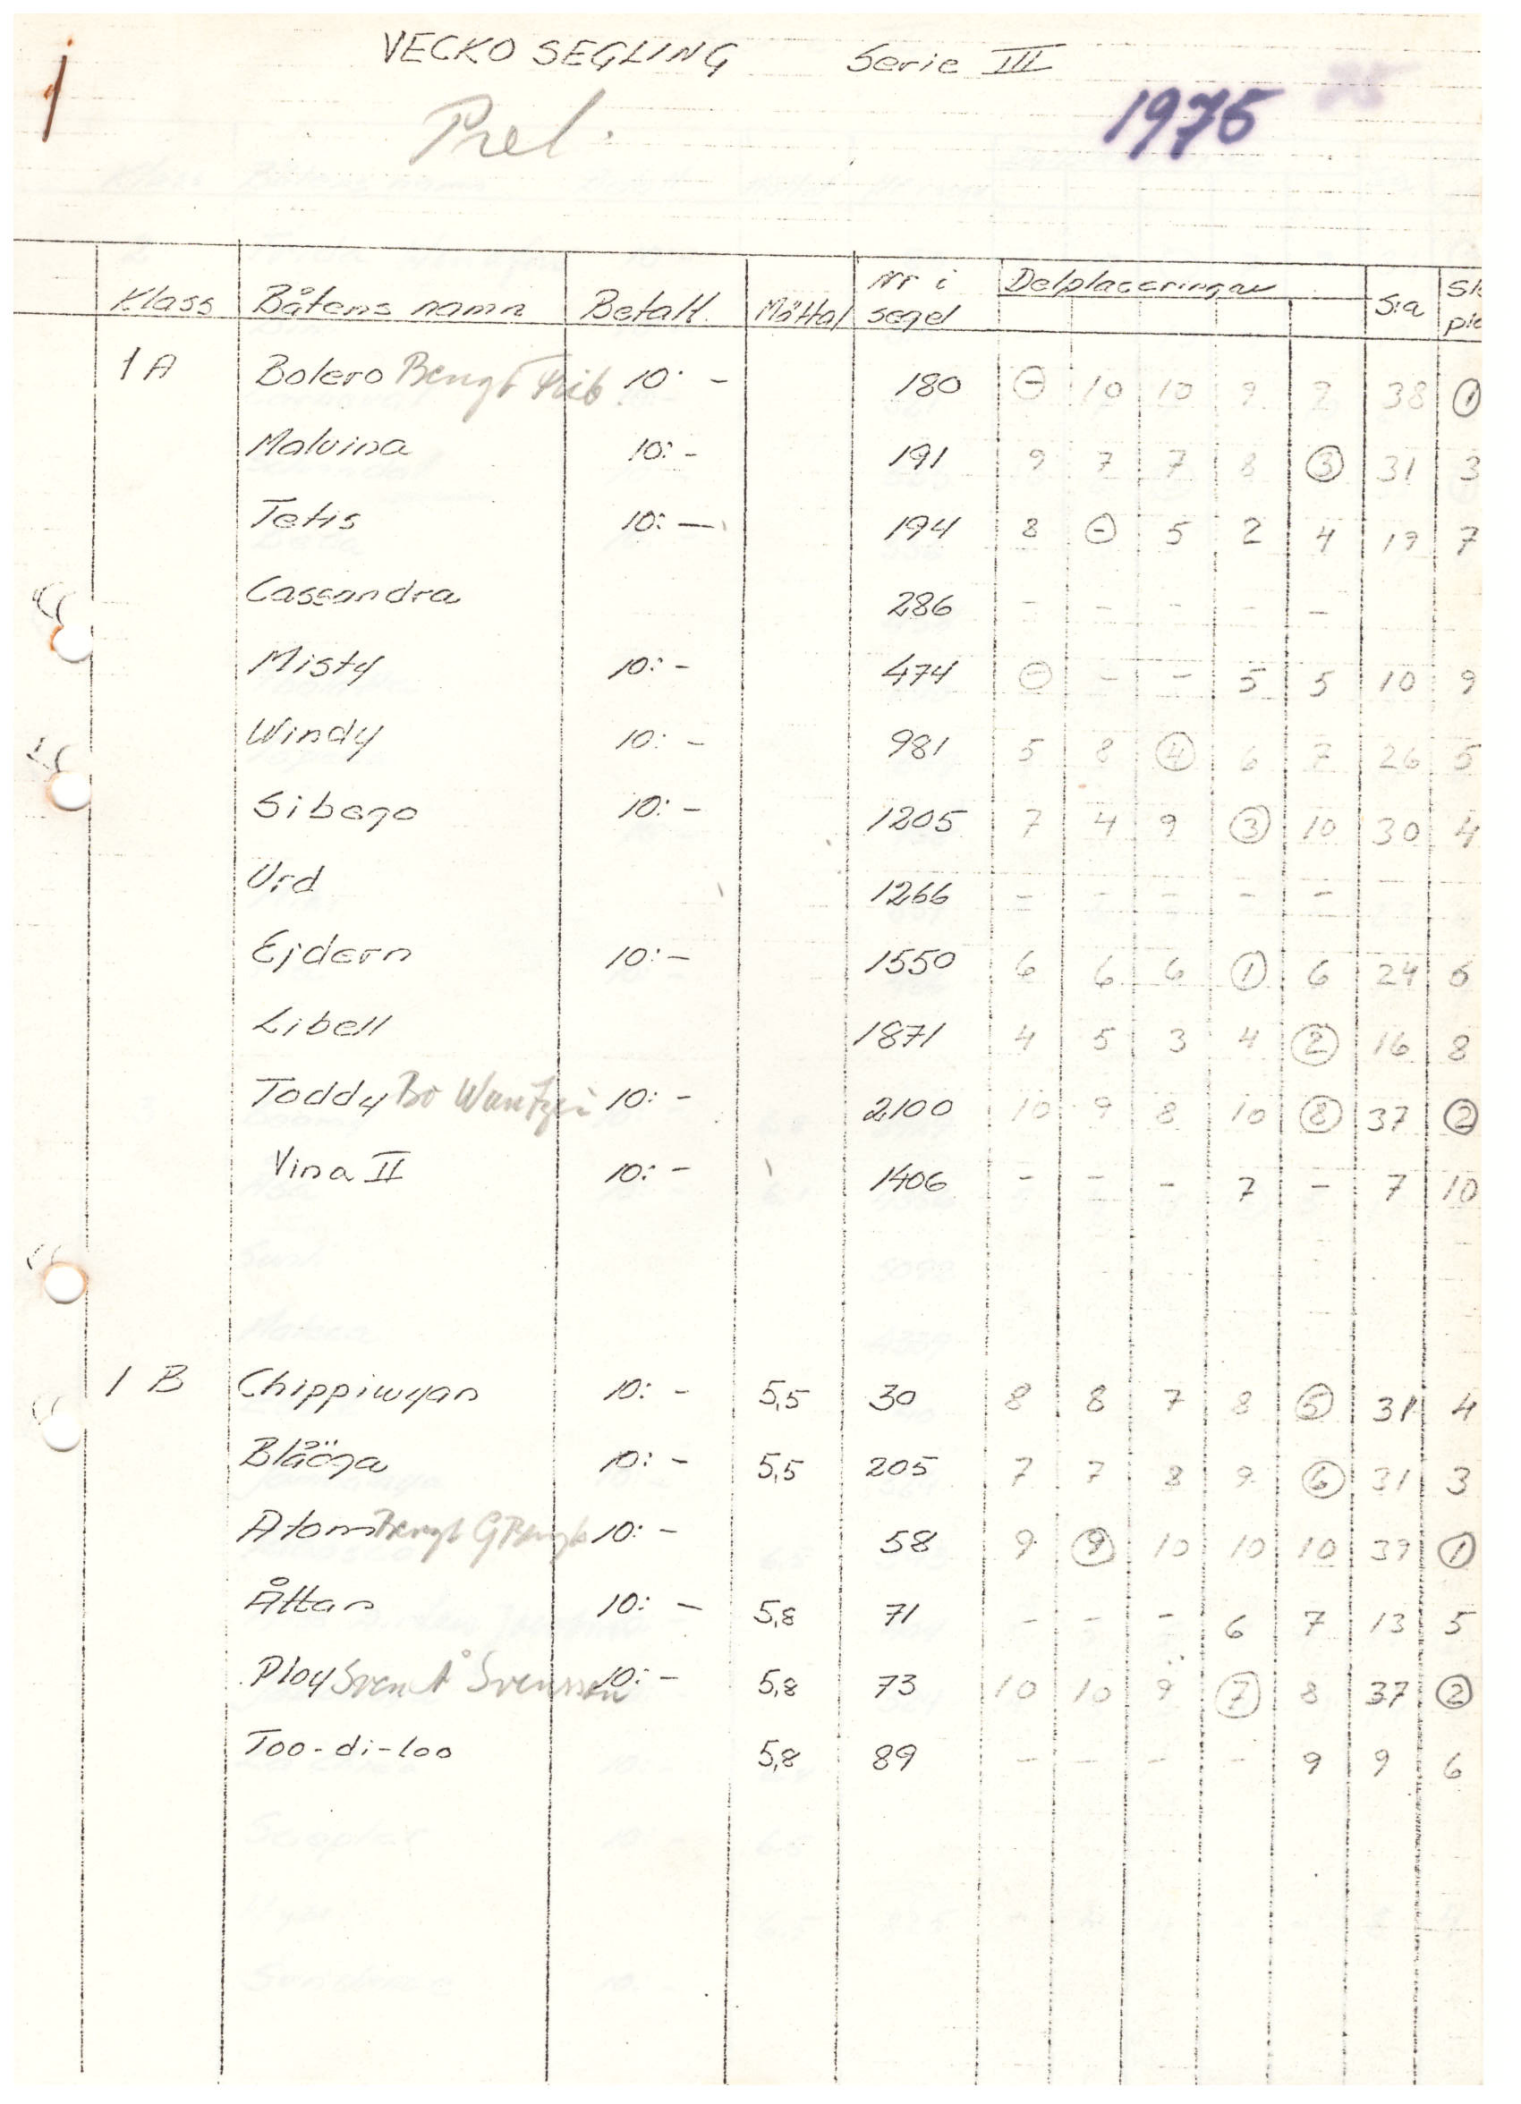 VECKO SEGLING Serie III
Prel. 1975
Klass Båtens namn Betalt Mättal Nr i segel Delplaceringar S:a
1A Bolero Bengt 10:- 180 (-) 10 10 9 9 38 (1)
Malvina 10:- 191 9 7 7 8 (3) 31 3
Tetis 10:- 194 8 (-) 5 2 4 19 7
Cassandra 286 - - - - -
Misty 10:- 474 (-) - - 5 5 10 9
Windy 10:- 981 5 8 (4) 6 7 26 5
Sibego 10:- 1205 7 4 9 (3) 10 30 4
Urd 1266 - - - - -
Ejdern 10:- 1550 6 6 6 (1) 6 24 6
Libell 1871 4 5 3 4 (2) 16 8
Toddy Bo 10:- 2100 10 9 8 10 (8) 37 (2)
Vina II 10:- 1406 - - - 7 - 7 10
1 B Chippiwyan 10:- 5,5 30 8 8 7 8 (5) 31 4
Blåöga 10:- 5,5 205 7 7 8 9 (6) 31 3
Atom Bengt G 10:- 58 9 (9) 10 10 10 39 (1)
Åttan 10:- 5,8 71 - - - 6 7 13 5
Ploy Sven Å Svensson 10:- 5,8 73 10 10 9 (7) 8 37 (2)
Too-di-loo 5,8 89 - - - - 9 9 6